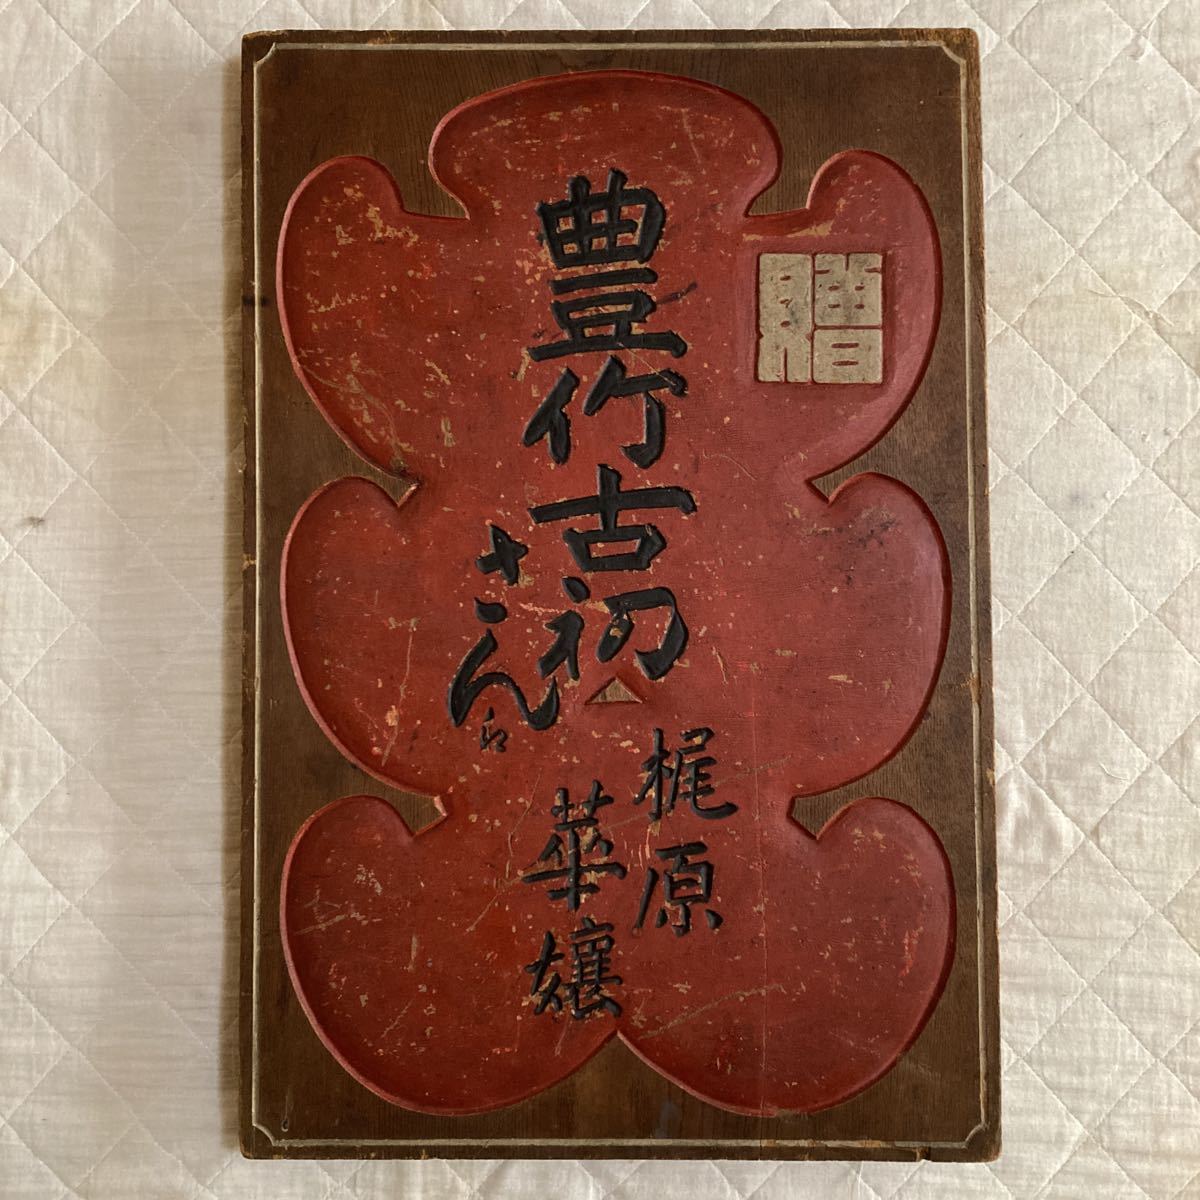 贈
豊竹古初
さん
江
梶原
華孃